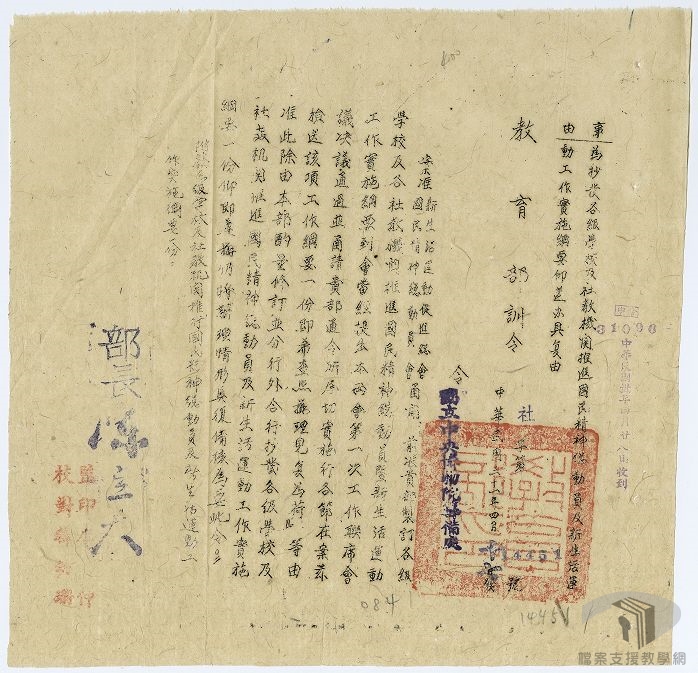 事由 為抄發各級學校及社教機關推進國民精神總動員及新生活運
動工作實施綱要仰遵辦具復由
教育部訓令
社
字第 14451 號
中華民國三十一年四月
令 國立中央博物院籌備處
案准新生活運動促進總會
國民精神總動員會函開
前接貴部製訂各級
學校及各社教機關推進國民精神總動員暨新生活運動
工作實施綱要到會當經提出本兩會第一次工作聯席會
議決議通過並函請貴部通令所屬切實施行各節在案茲
檢送該項工作綱要一份即希查照辦理見复為荷等由
准此除由本部酌量修訂並分行外合行抄發各級學校及
社教机关推進國民精神総動員及新生活運動工作實施
綱要一份仰即遵辦仍將辦理情形具復備核為要此令
附發各級學校及社教机関推行國民精神総動員及新生活運動工
作實施綱要一份
部長陳立夫
監印
校對
31090
中華民國31年四月廿八日收到
084
14451
檔案支援教學網